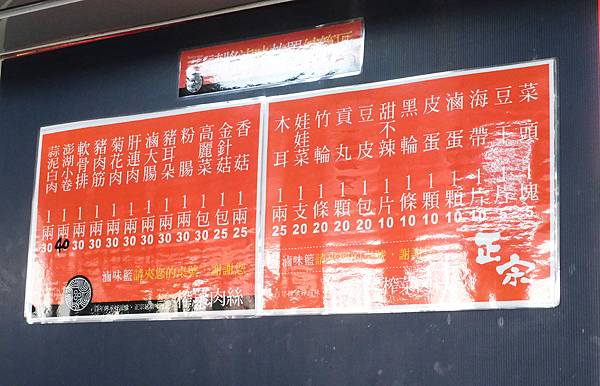 菜頭 1塊
豆干 1片
海帶 1片 10
滷蛋 1顆 10
皮蛋 1顆 10
黑輪 1條 10
甜不辣 1片 10
豆皮 1包 20
貢丸 1顆 20
竹輪 1條 20
娃娃菜 1支 20
木耳 1兩 25
滷味籃請夾您的桌號，謝謝
正宗
香菇 1兩 25
金針菇 1包 25
高麗菜 1包 30
粉腸 1兩 30
豬耳朵 1兩 30
滷大腸 1兩 30
肝連肉 1兩 30
菊花肉 1兩 30
豬肉筋 1兩 30
軟骨排 1兩 30
澎湖小卷 1兩 40
蒜泥白肉 1兩 30
滷味籃請夾您的桌號，謝謝您
榨菜肉絲